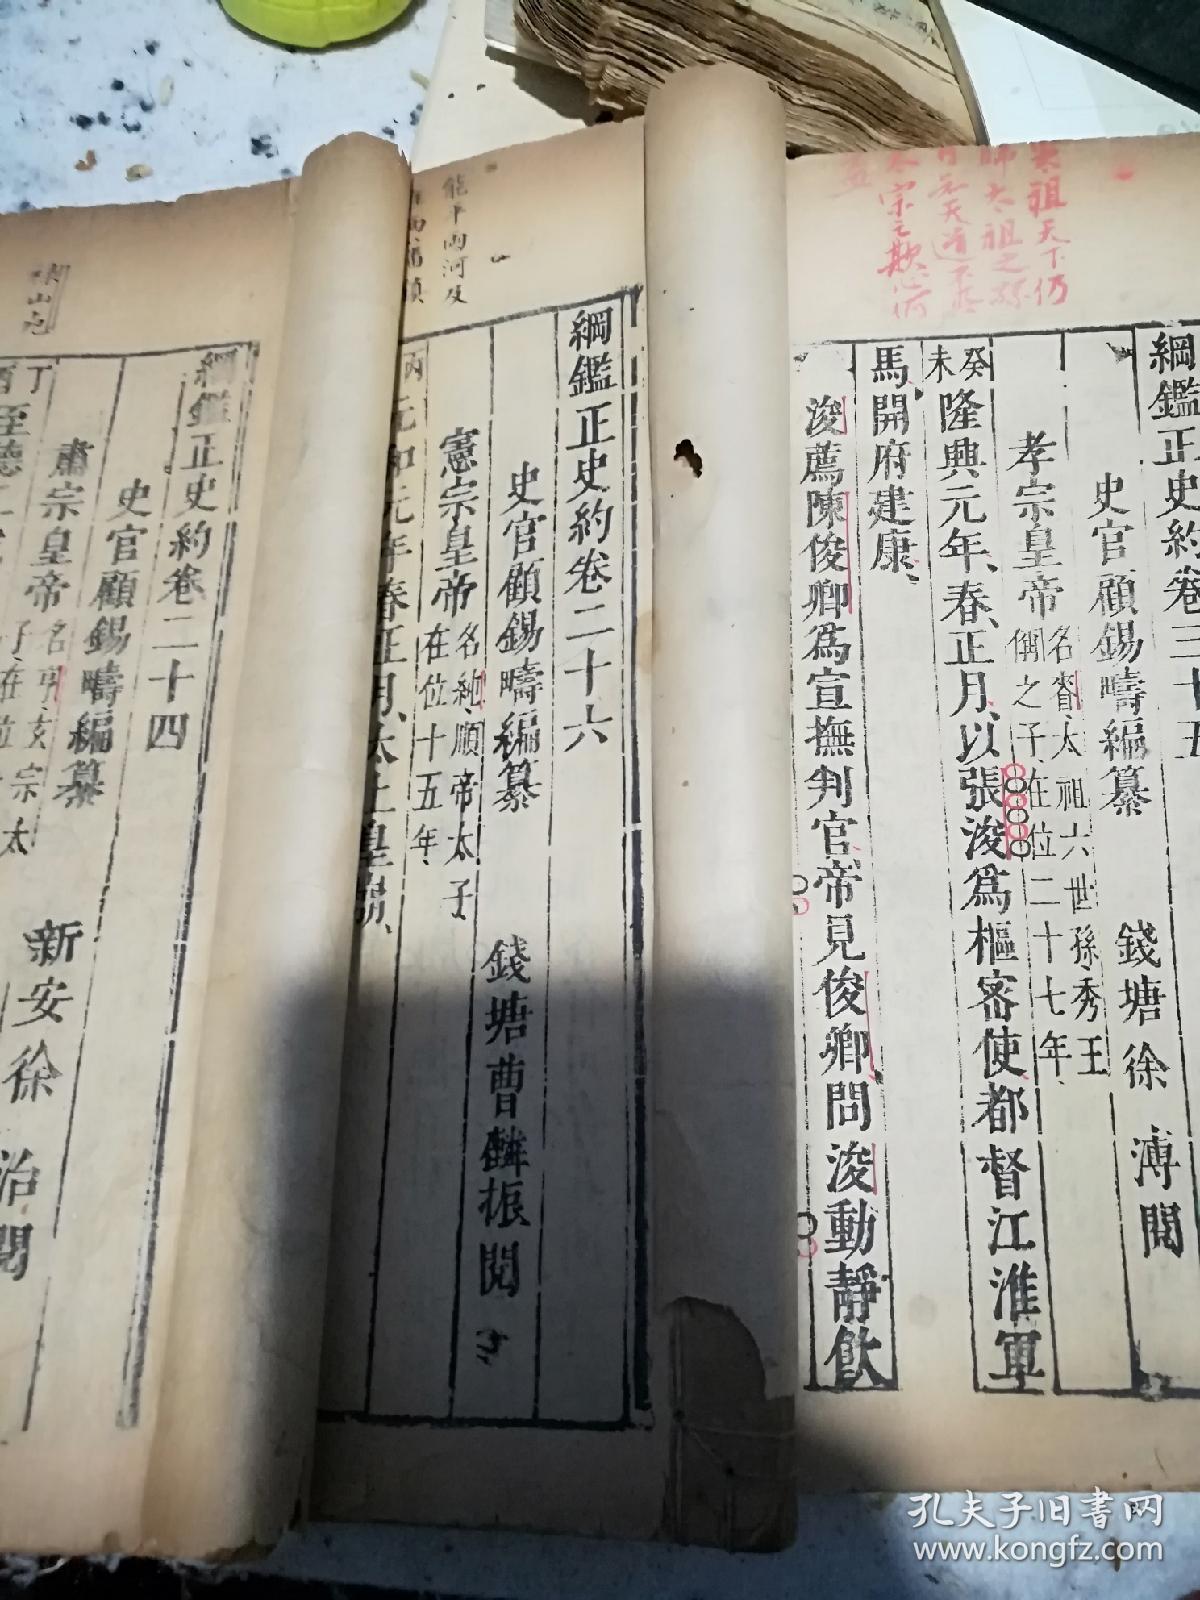 綱鑑正史約卷三十五
史官顧錫疇編纂　錢塘徐　溥閱
孝宗皇帝名昚太祖六世孫秀王
偁之子在位二十七年
癸未隆興元年春正月以張浚爲樞密使都督江淮軍
馬開府建康
浚薦陳俊卿爲宣撫判官帝見俊卿問浚動靜飲
祖天下仍
太祖之
天道不
太宗之欺心何
綱鑑正史約卷二十六
史官顧錫疇編纂　錢塘曹麟振閱
憲宗皇帝名純順帝太子
在位十五年
丙元和元年春正月太上皇崩
能平兩河及
綱鑑正史約卷二十四
史官顧錫疇編纂　新安徐　治閱
肅宗皇帝名亨玄宗太
子在位
丁酉至德二
孔夫子旧书网
www.kongfz.com